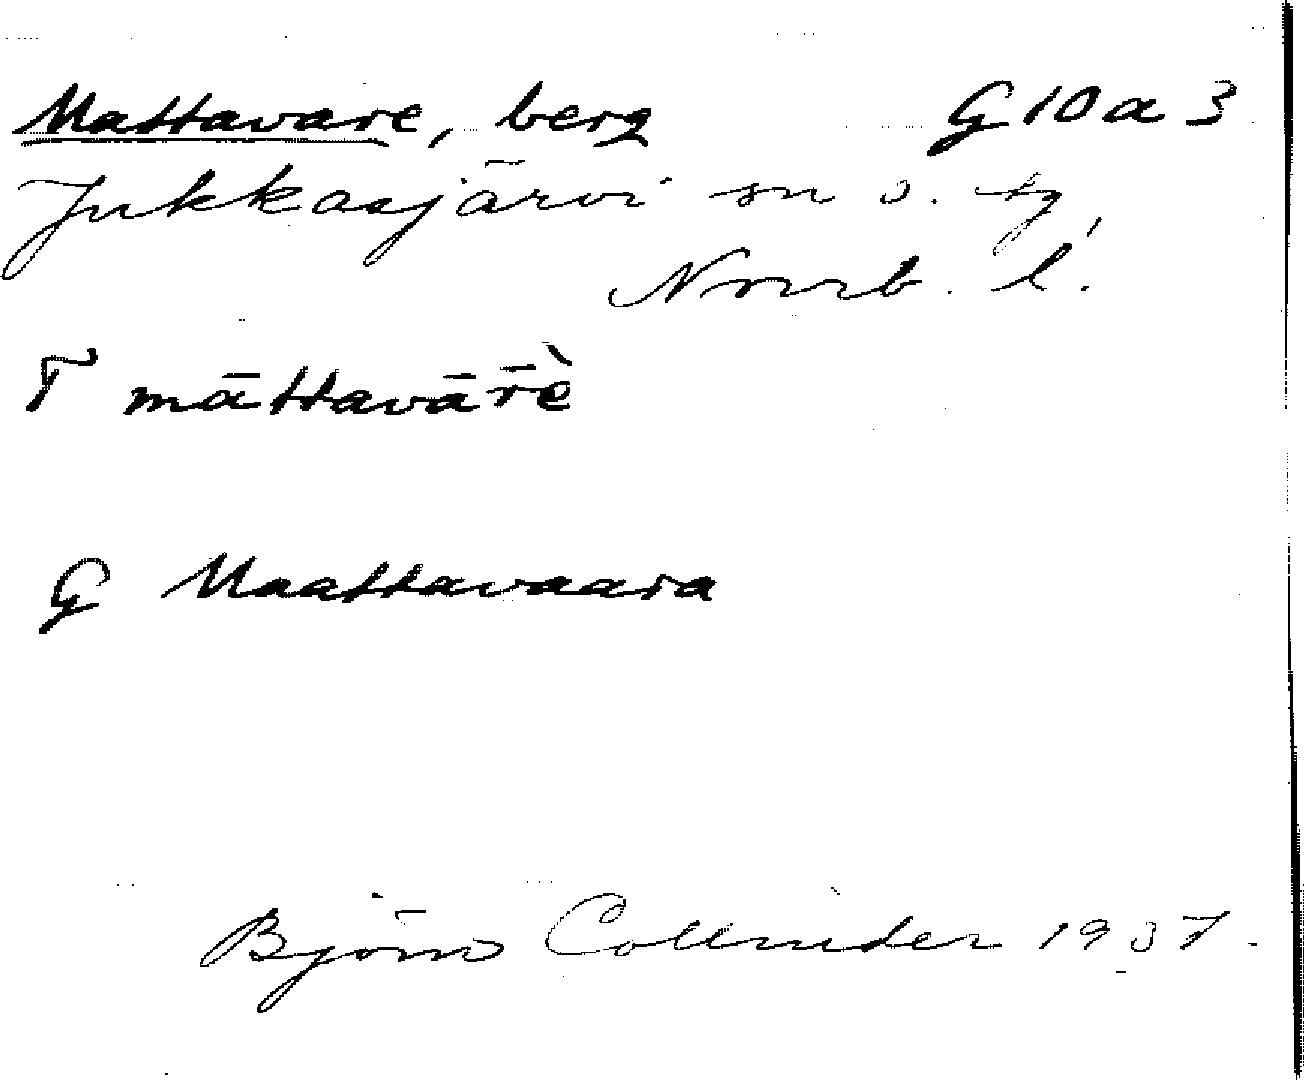 Mattavare, berg G10a3
Jukkasjärvi sn o. tg,
Norrb. l.
F māttavār̄ḕ
G Maattavaara
Björn Collinder 1937.